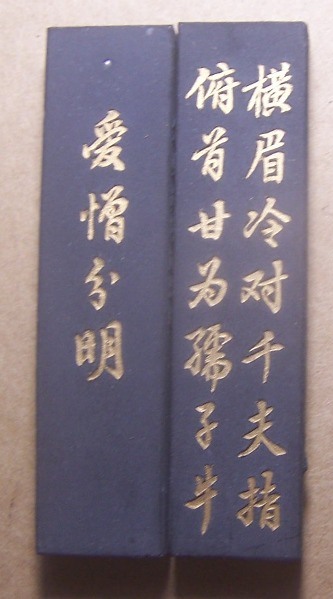 横眉冷对千夫指
俯首甘为孺子牛
爱憎分明